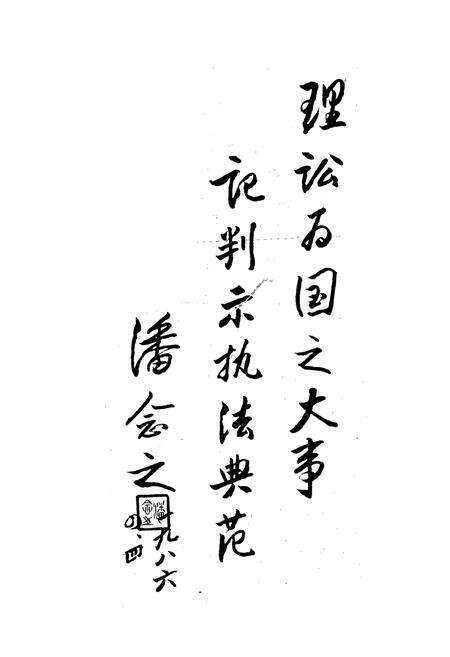 理讼为国之大事
记判示执法典范
潘念之
一九八六
四、四